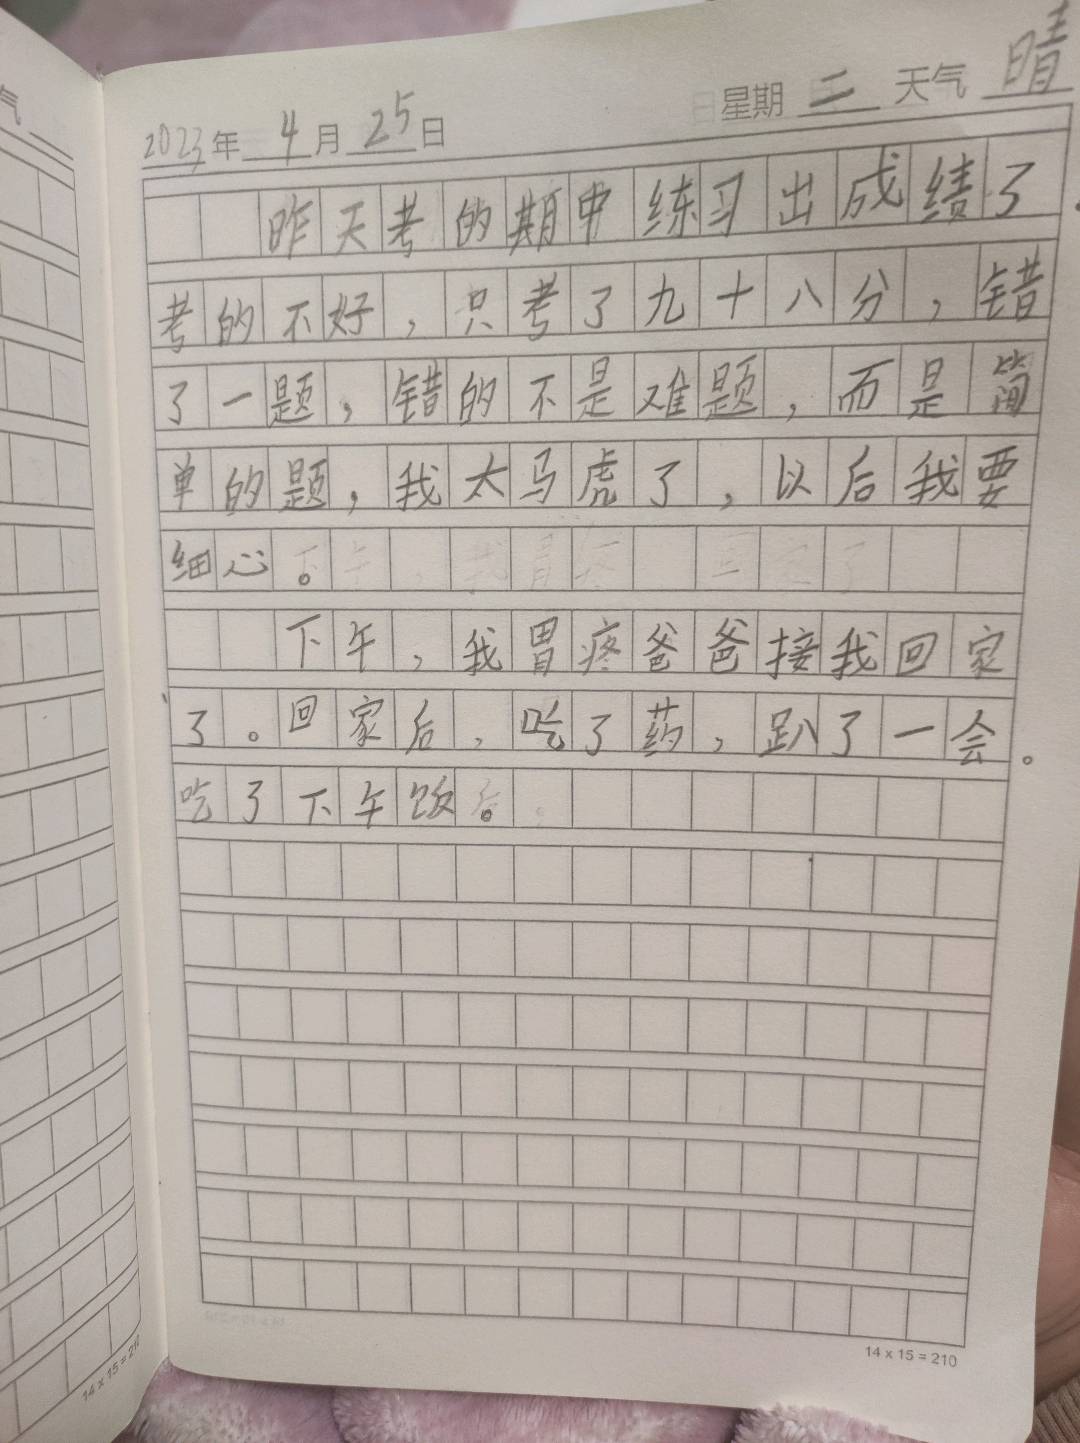 气
2023年4月25日 星期二 天气 晴
昨天考的期中练习出成绩了.
考的不好，只考了九十八分，错
了一题，错的不是难题，而是简
单的题，我太马虎了，以后我要
细心。
下午，我胃疼爸爸接我回家
了。回家后，吃了药，趴了一会。
吃了下午饭。
14×15=210
14×15=210